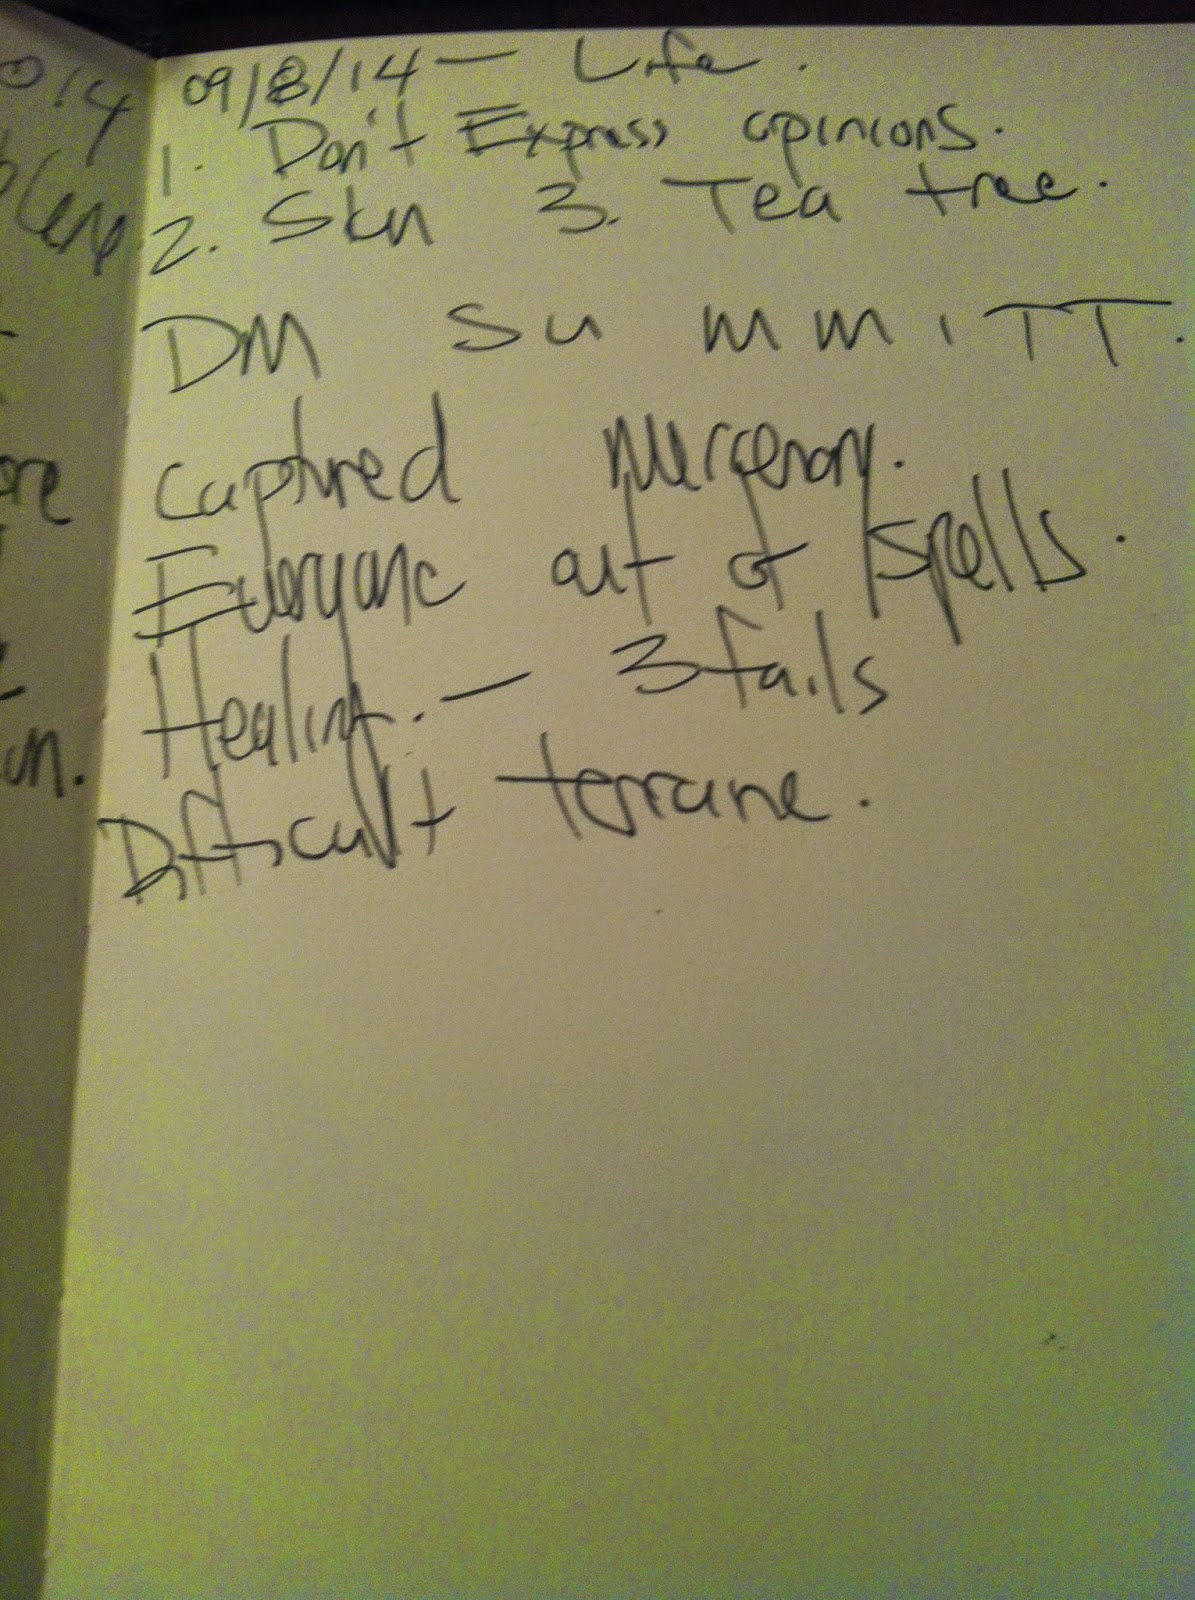 014
09/8/14 — Life.
1. Don't Express opinions.
2. Skn 3. Tea tree.
DM SUMMITT.
Captured Mercenary.
ore
Everyone out of spells.
Healing. — 3 fails
un.
Difficult terraine.